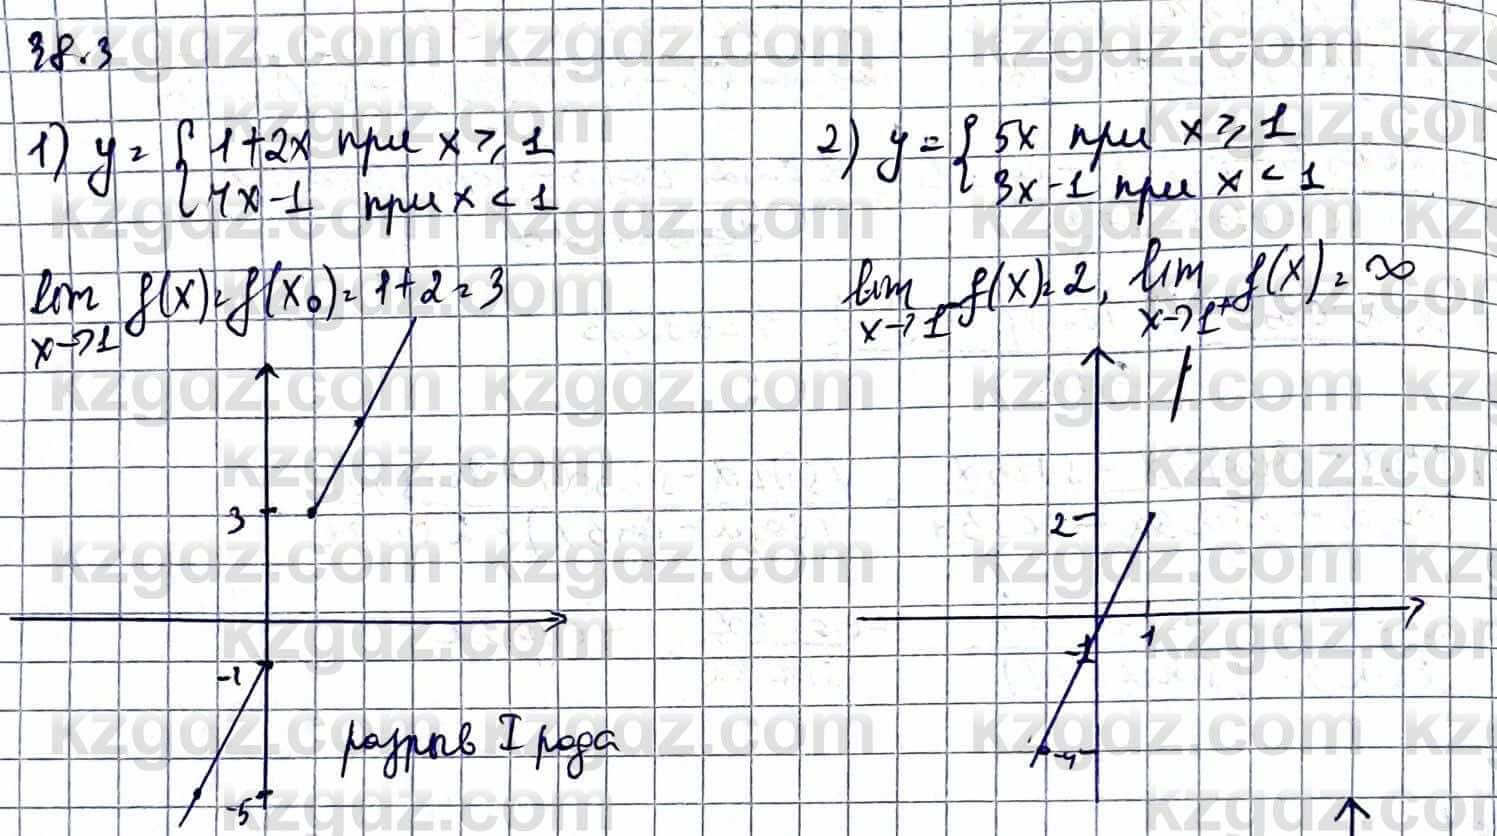 38.3
1) y = { 1+2x при x ⩾ 1
4x-1 при x < 1
lim f(x) = f(x₀) = 1+2 = 3
x→1
3
-1
-5
разрыв I рода
2) y = { 5x при x ⩾ 1
3x-1 при x < 1
lim f(x) = 2, lim f(x) = ∞
x→1⁻ x→1⁺
2
-1 1
-4
kzgdz.com